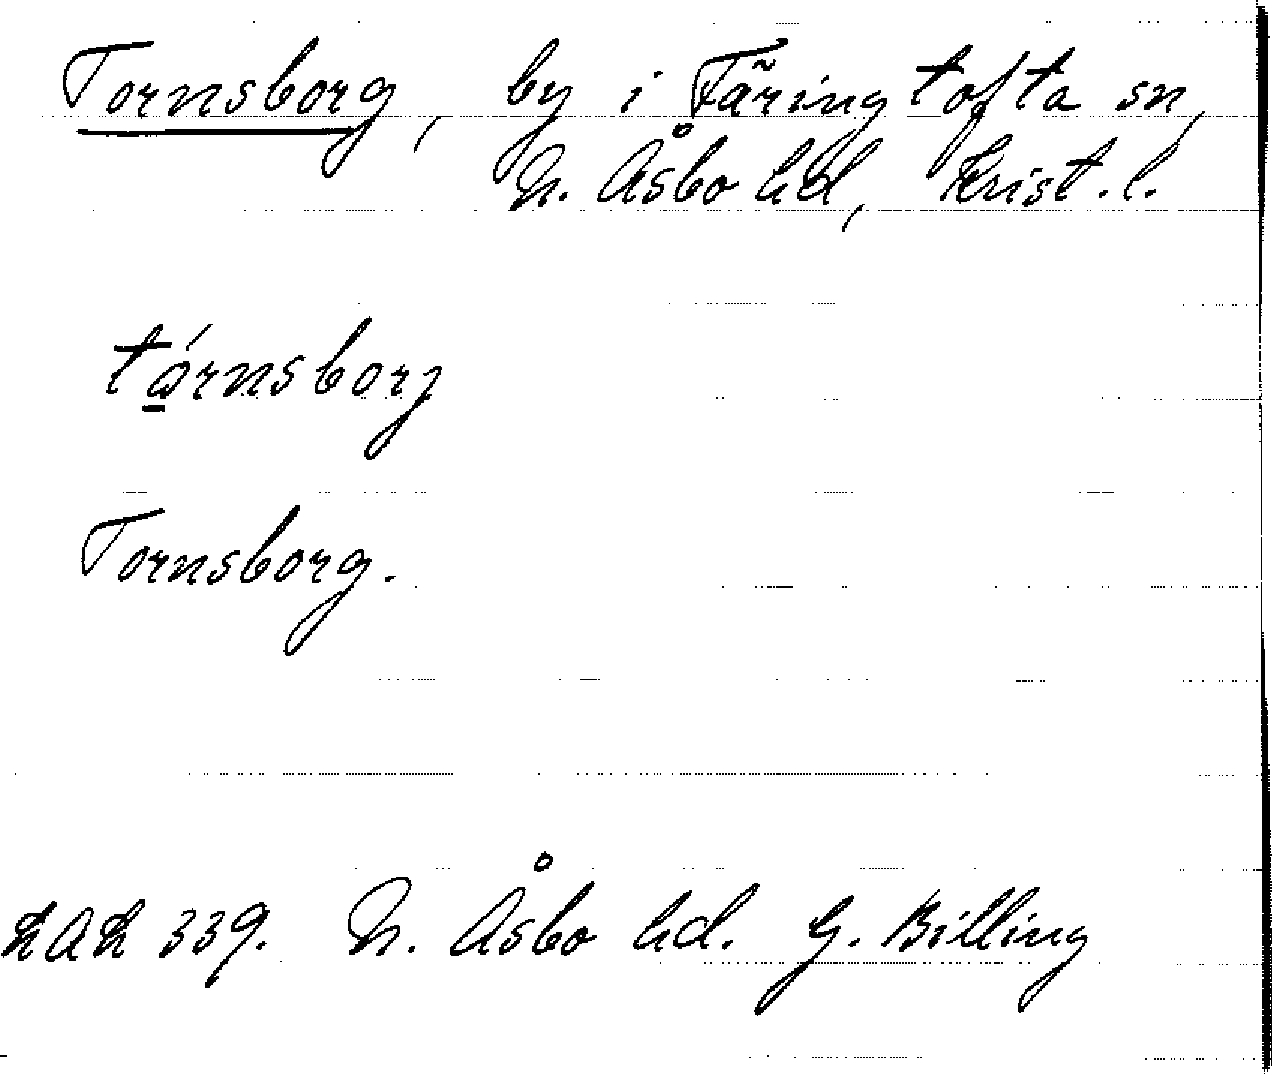 Tornsborg, by i Färingtofta sn,
N. Åsbo hd, Krist. l.
tǫ́rnsborj
Tornsborg.
LAL 339. N. Åsbo hd. G. Billing